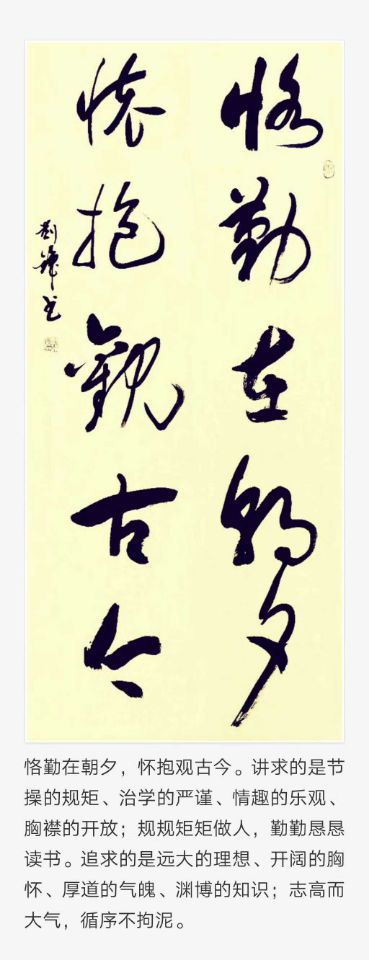 恪勤在朝夕
懷抱觀古今
恪勤在朝夕，怀抱观古今。讲求的是节
操的规矩、治学的严谨、情趣的乐观、
胸襟的开放；规规矩矩做人，勤勤恳恳
读书。追求的是远大的理想、开阔的胸
怀、厚道的气魄、渊博的知识；志高而
大气，循序不拘泥。